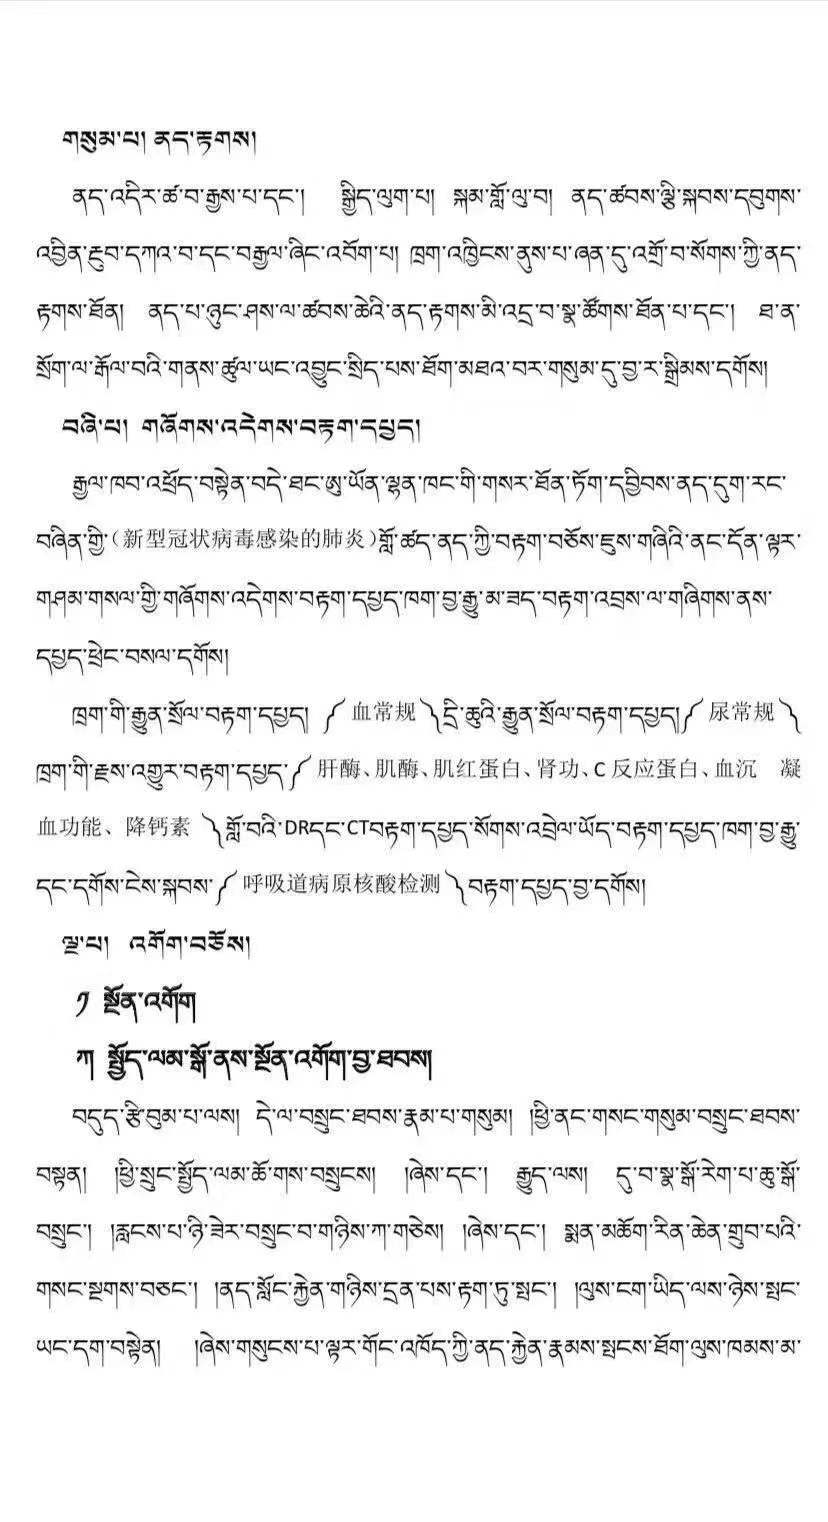 གསུམ་པ། ནད་རྟགས།
ནད་འདིར་ཚ་བ་རྒྱས་པ་དང་། སྒྱིད་ལུག་པ། སྐམ་གློ་ལུ་བ། ནད་ཚབས་ལྕི་སྐབས་དབུགས་
འབྱིན་རྔུབ་དཀའ་བ་དང་བརྒྱལ་ཞིང་འབོག་པ། ཁྲག་འཁྱིངས་ནུས་པ་ཞན་དུ་འགྲོ་བ་སོགས་ཀྱི་ནད་
རྟགས་ཐོན། ནད་པ་ཉུང་ཤས་ལ་ཚབས་ཆེའི་ནད་རྟགས་མི་འདྲ་བ་སྣ་ཚོགས་ཐོན་པ་དང་། ཐ་ན་
སྲོག་ལ་རྒོལ་བའི་གནས་ཚུལ་ཡང་འབྱུང་སྲིད་པས་ཐོག་མཐའ་བར་གསུམ་དུ་བྱ་ར་སྒྲིམས་དགོས།
བཞི་པ། གཞོགས་འདེགས་བརྟག་དཔྱད།
རྒྱལ་ཁབ་འཕྲོད་བསྟེན་བདེ་ཐང་ཨུ་ཡོན་ལྷན་ཁང་གི་གསར་ཐོན་ཏོག་དབྱིབས་ནད་དུག་རང་
བཞིན་གྱི་(新型冠状病毒感染的肺炎)གློ་ཚད་ནད་ཀྱི་བརྟག་བཅོས་ཇུས་གཞིའི་ནང་དོན་ལྟར་
གཤམ་གསལ་གྱི་གཞོགས་འདེགས་བརྟག་དཔྱད་ཁག་བྱ་རྒྱུ་མ་ཟད་བརྟག་འབྲས་ལ་གཞིགས་ནས་
དཔྱད་ཕྲེང་བསལ་དགོས།
ཁྲག་གི་རྒྱུན་སྲོལ་བརྟག་དཔྱད། ༼ 血常规 ༽དྲི་ཆུའི་རྒྱུན་སྲོལ་བརྟག་དཔྱད།༼ 尿常规 ༽
ཁྲག་གི་རྫས་འགྱུར་བརྟག་དཔྱད་༼ 肝酶、肌酶、肌红蛋白、肾功、C 反应蛋白、血沉 凝
血功能、降钙素 ༽གློ་བའི་DRདང་CTབརྟག་དཔྱད་སོགས་འབྲེལ་ཡོད་བརྟག་དཔྱད་ཁག་བྱ་རྒྱུ་
དང་དགོས་ངེས་སྐབས་༼ 呼吸道病原核酸检测 ༽བརྟག་དཔྱད་བྱ་དགོས།
ལྔ་པ། འགོག་བཅོས།
༡ སྔོན་འགོག
ཀ སྤྱོད་ལམ་སྒོ་ནས་སྔོན་འགོག་བྱ་ཐབས།
བདུད་རྩི་བུམ་པ་ལས། དེ་ལ་བསྲུང་ཐབས་རྣམ་པ་གསུམ། །ཕྱི་ནང་གསང་གསུམ་བསྲུང་ཐབས་
བསྟན། །ཕྱི་སྲུང་སྤྱོད་ལམ་ཆོ་གས་བསྲུངས། །ཞེས་དང་། རྒྱུད་ལས། དུ་བ་སྣ་སྒོ་རེག་པ་ཆུ་སྒོ་
བསྲུང་། །རླངས་པ་ཉི་ཟེར་བསྲུང་བ་གཉིས་ཀ་གཅེས། །ཞེས་དང་། སྨན་མཆོག་རིན་ཆེན་གྲུབ་པའི་
གསང་སྔགས་བཅང་། །ནད་སློང་རྐྱེན་གཉིས་དྲན་པས་རྟག་ཏུ་སྤང་། །ལུས་ངག་ཡིད་ལས་ཉེས་སྤང་
ཡང་དག་བསྟེན། །ཞེས་གསུངས་པ་ལྟར་གོང་འཁོད་ཀྱི་ནད་རྐྱེན་རྣམས་སྤངས་ཐོག་ལུས་ཁམས་མ་